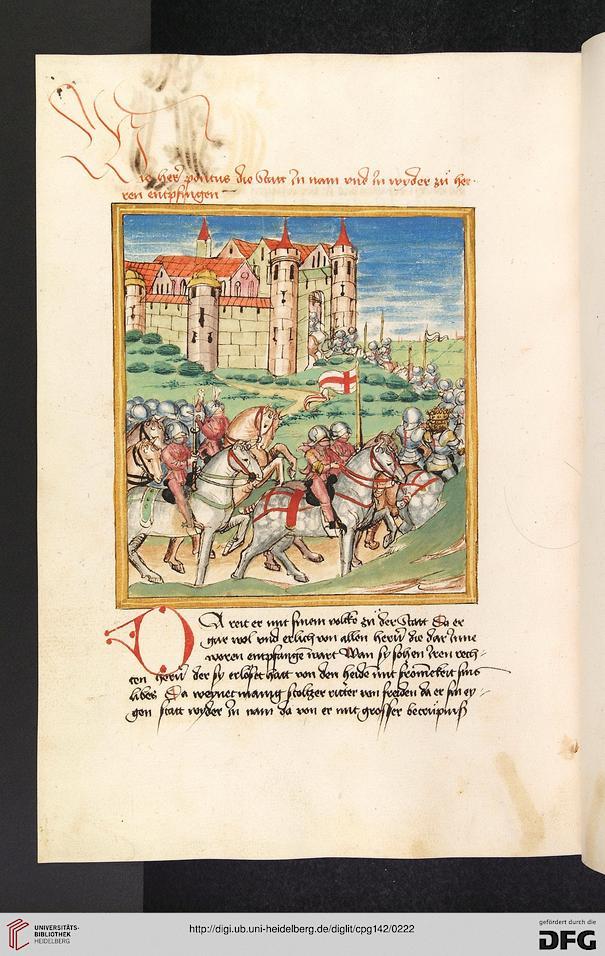 Wie her pontus die Statt Jn nam vnd Jn wyder zu her-
ren entpfingen
DA reit er mit sinem volcke zu der Statt Da er
gar wol vnd erlich von allen herrn die dar Jnne
woren entpfangen wart Wan sy sohen Jren rech-
ten herrn der sy erloset hatt von den heiden mit fromekeit sins
libes Da weynet manig stoltzer ritter von freiden da er sin ey-
gen statt wyder Jn nam do von er mit grosser betrupniß
UNIVERSITÄTS-
BIBLIOTHEK
HEIDELBERG
http://digi.ub.uni-heidelberg.de/diglit/cpg142/0222
gefördert durch die
DFG